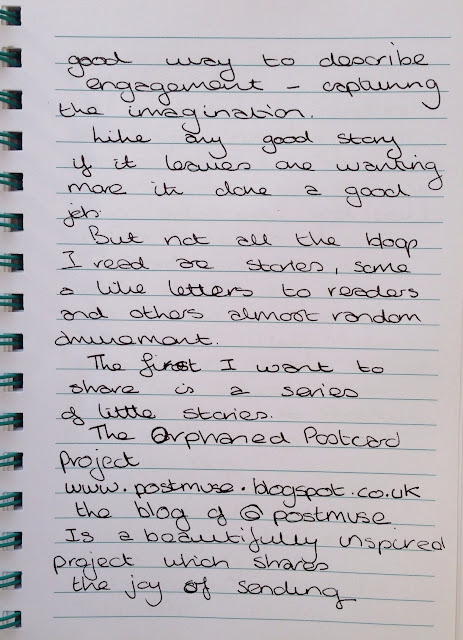 good way to describe
engagement - capturing
the imagination.
Like any good story
if it leaves one wanting
more it's done a good
job.
But not all the blogs
I read are stories, some
a like letters to readers
and others almost random
amusement.
The first I want to
share is a series
of little stories.
The Orphaned Postcard
Project
www.postmuse.blogspot.co.uk
the blog of @postmuse
Is a beautifully inspired
project which shares
the joy of sending